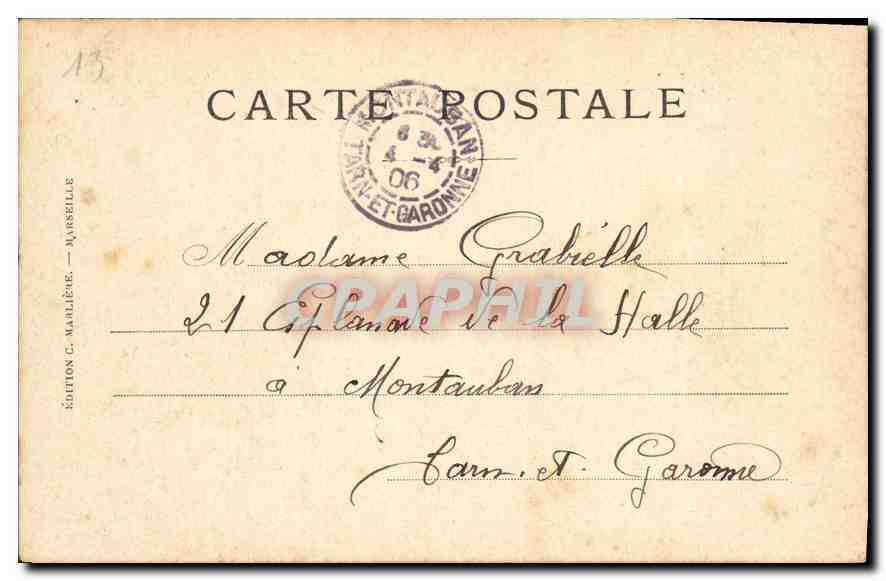 13
CARTE POSTALE
MONTAUBAN
6 
4 -4
06
TARN-ET-GARONNE
ÉDITION C. MARLIÈRE. — MARSEILLE
Madame Grabiélle
CPAPHIL
21 Esplanade de la Halle
à Montauban
Tarn. et. Garonne